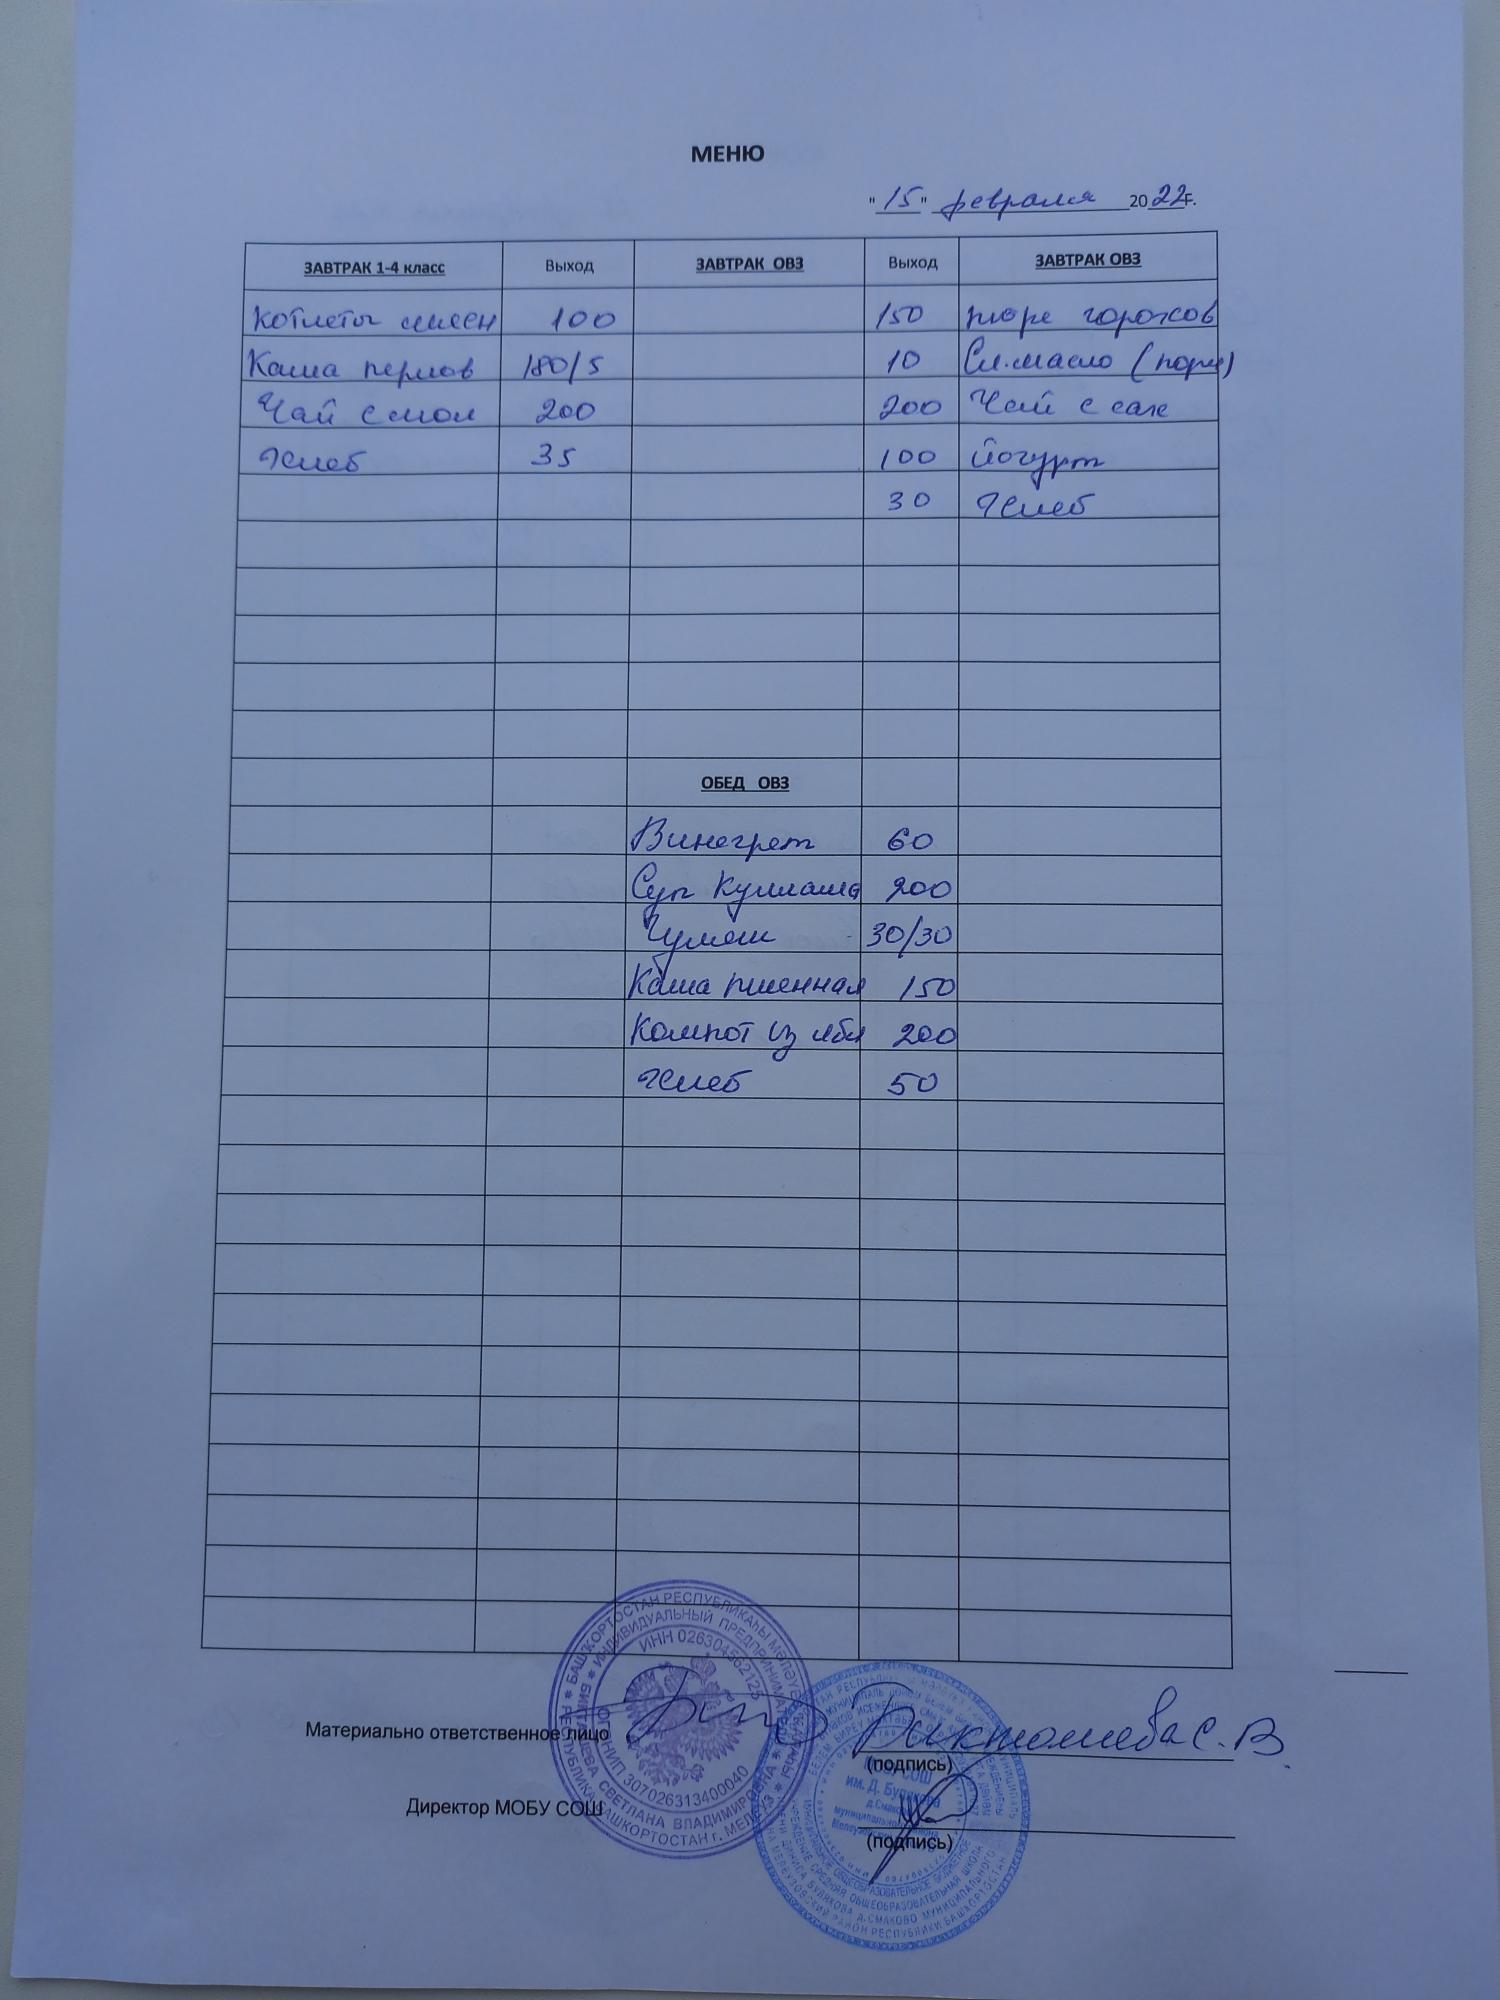 МЕНЮ
"15" февраля 2022г.
ЗАВТРАК 1-4 класс Выход ЗАВТРАК ОВЗ Выход ЗАВТРАК ОВЗ
Котлеты 100 150 пюре горохов
Каша перлов 180/5 10 Сл.масло (порц)
Чай с мол 200 200 Чай с сах
Хлеб 35 100 йогурт
30 Хлеб
ОБЕД ОВЗ
Винегрет 60
Суп Куллама 200
30/30
Каша пшенная 150
Компот из ябл 200
Хлеб 50
Материально ответственное лицо Бикташева С. В
(подпись)
Директор МОБУ СОШ
(подпись)
БАШҠОРТОСТАН РЕСПУБЛИКАҺЫ
ИНДИВИДУАЛЬНЫЙ ПРЕДПРИНИМАТЕЛЬ
ИНН 026304562125
ОГРНИП 307026313400040
БИКТАШЕВА СВЕТЛАНА ВЛАДИМИРОВНА
РЕСПУБЛИКА БАШКОРТОСТАН г. МЕЛЕУЗ
МОБУ СОШ
им. Д. Будякова
д.Смаково
муниципального района